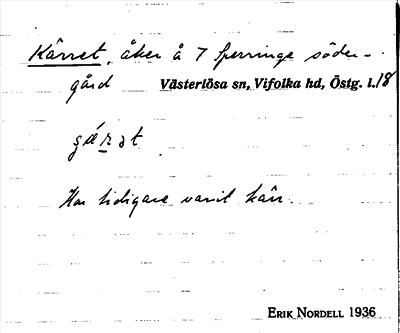 Kärret, åker å 7 Sperringe söder-
gård Västerlösa sn, Vifolka hd, Östg. l./18
Har tidigare varit kärr.
ERIK NORDELL 1936